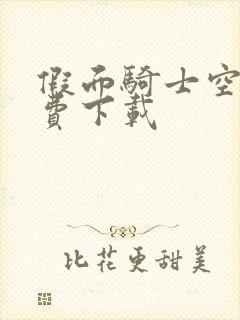 假面騎士空
費下載
比花更甜美